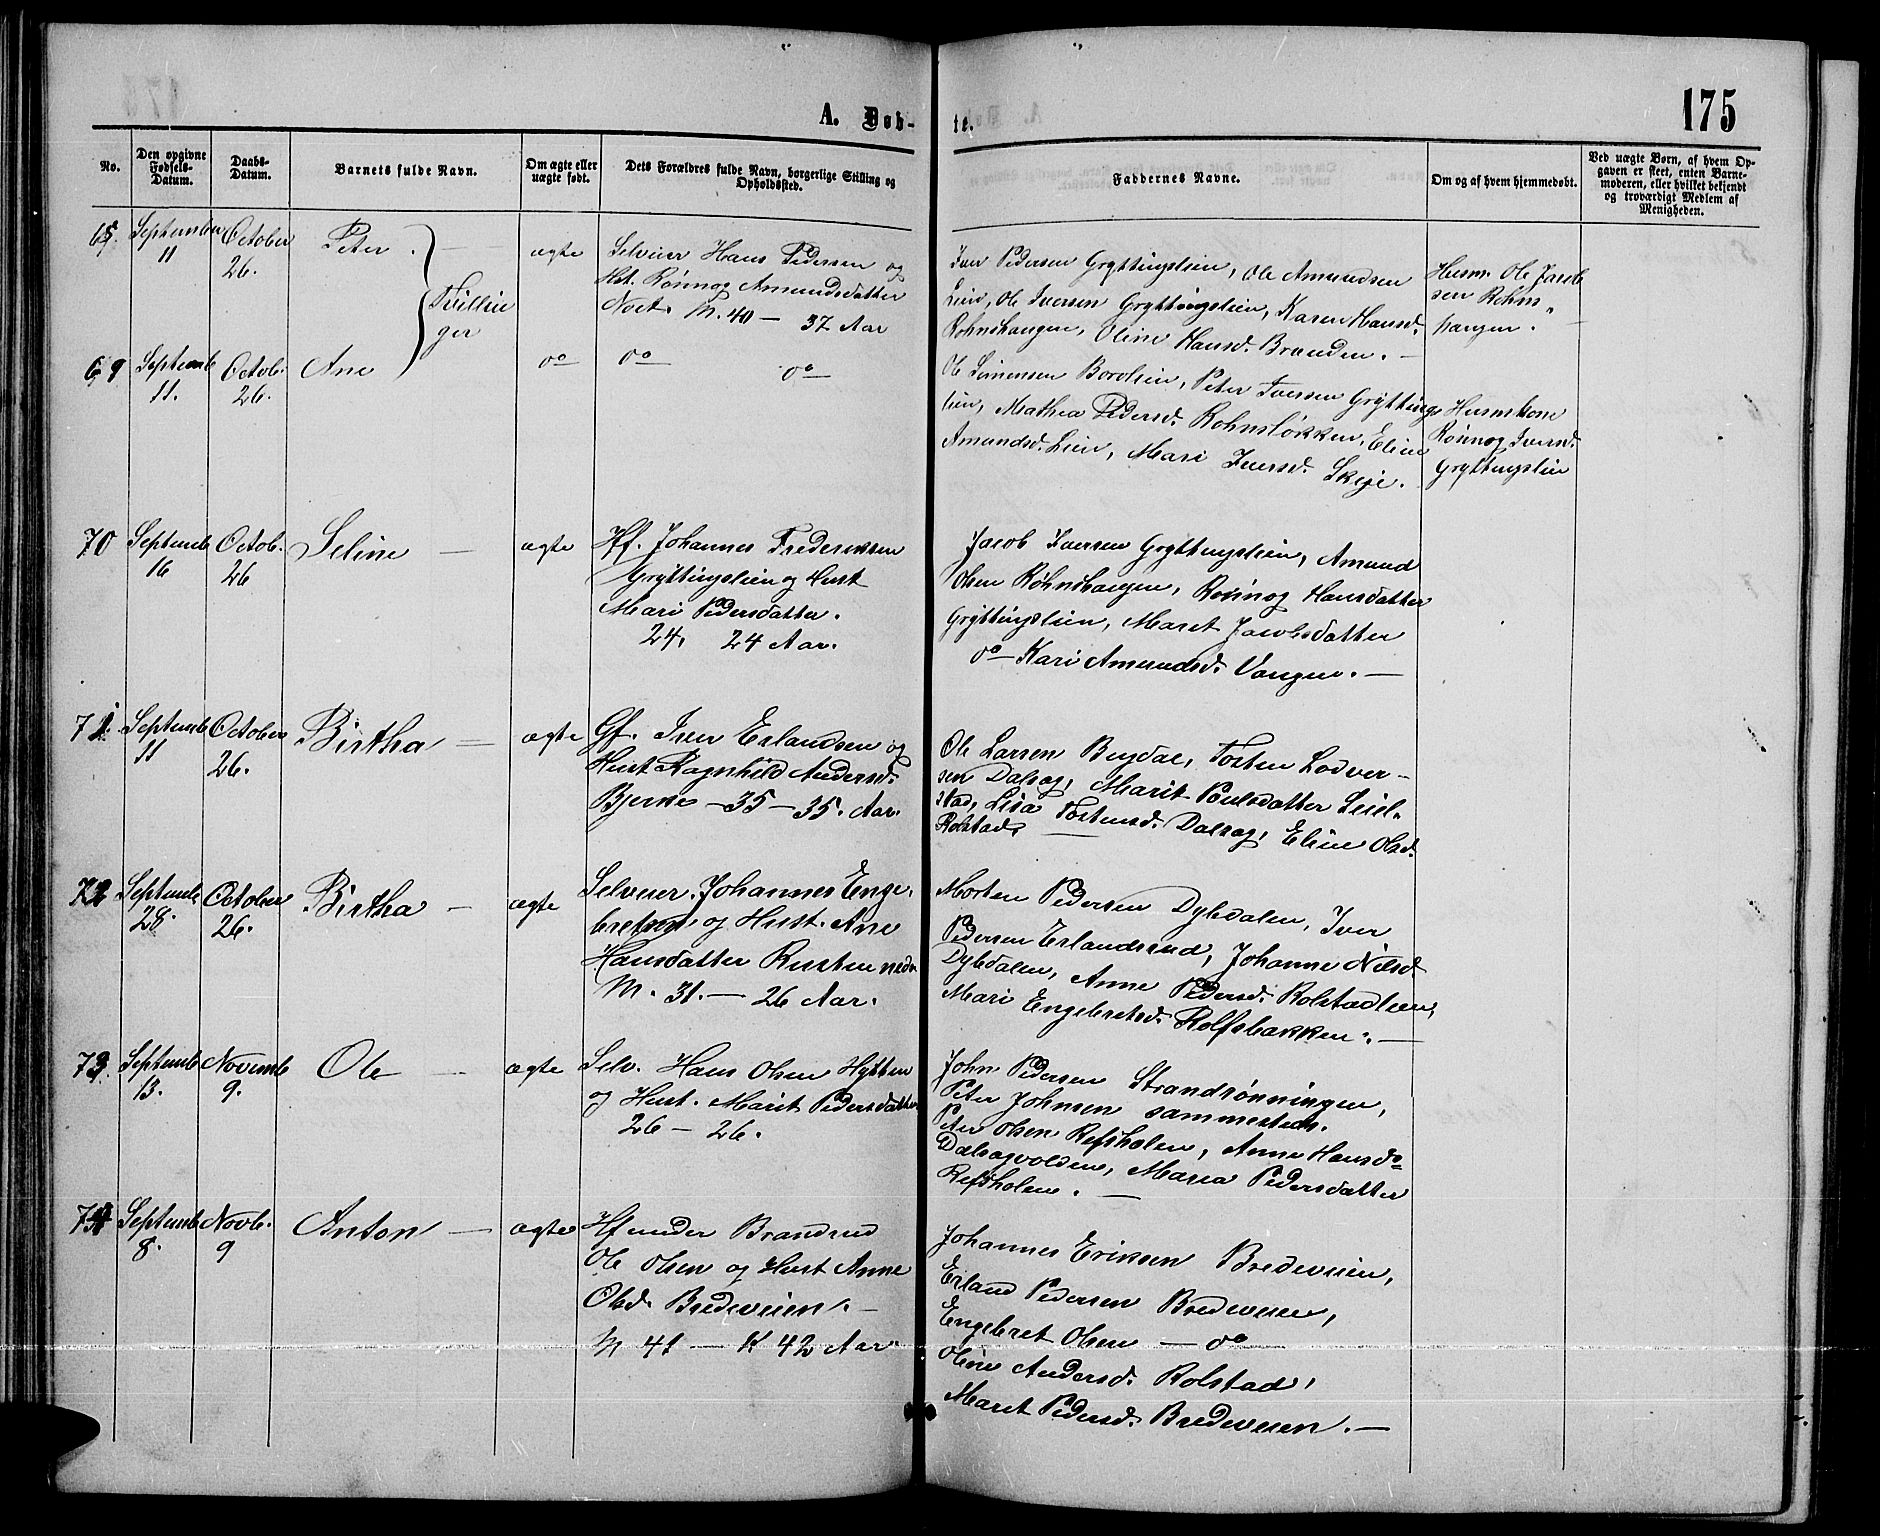 175
A. Døb-
te.
No.
Den opgivne Fødsels-Datum.
Daabs-Datum.
Barnets fulde Navn.
Om ægte eller uægte født.
Dets Forældres fulde Navn, borgerlige Stilling og Opholdssted.
Faddernes Navne.
Om og af hvem hjemmedøbt.
Ved uægte Børn, af hvem Opgaven er skeet, enten Barnemoderen, eller hvilket bekjendt og troværdigt Medlem af Menigheden.
68. September 11 October 26. Peter. Tvillinger ægte
Selveier Hans Pedersen og
Hst. Rønnog Amundsdatter
M. 40 — 37 Aar
Iver Pedersen Gryttingslien, Ole Amundsen
Lien, Ole Iversen Gryttingslien, Karen Hansd.
Rohnshaugen, Oline Hansd. Branden. —
Husm. Ole Jacob
sen Rohns
haugen.
69 Septemb 11. Octob. 26. Ane do do do
Ole Simensen Borolien, Peter Iversen Gryttings
lien, Mathea Pedersd. Rohnsløkken, Eline
Amundsd. Lien, Mari Iversd. Skeje.
Husmkone
Rønnog Iversd.
Gryttingslien
70 Septemb 16 Octob. 26 Seline — ægte
Hf. Johannes Frederiksen
Gryttingslien og Hust
Mari Pedersdatter.
24, 24 Aar.
Jacob Iversen Gryttingslien, Amund
Olsen Rohnshaugen, Rønnog Hansdatter
Gryttingslien, Maret Jacobsdatter
do — Kari Amundsd. Vangen. —
71. Septemb 11 October 26. Birtha — ægte
Gf. Iver Erlandsen og
Hust Ragnhild Andersd.
Bjerke — 35 — 35. Aar.
Ole Larsen Bugdal, Tosten Lodver-
sen Dalsog, Marit Poulsdatter Liel-
stad, Lisa Tostensd. Dalsog, Eline Olsd.
Rolstad.
72 Septemb 28. October 26. Birtha — ægte
Selveier Johannes Enge-
bretsen og Hust. Ane
Hansdatter Rusten nedr
M. 31. — 26 Aar.
Morten Pedersen Dybdalen, Iver
Pedersen Erlandsrud, Johanne Nilsd
Dybdalen, Anne Pedersd. Rolstadlien,
Mari Engebretsd. Rolfsbakken. —
73. Septemb 13. Novemb 9. Ole — ægte
Selv. Hans Olsen Hytten
og Hust. Marit Pedersdatter
26 — 26.
John Pedersen Strandrønningen,
Peter Johnsen sammesteds.
Peter Olsen Refsholen, Anne Hansd.
Dalsogvolden, Maria Pedersdatter
Refsholen. —
74 Septemb 8. Novb. 9 Anton — ægte
Hf under Brandrud
Ole Olsen og Hust Anne
Olsd. Bredeveien. —
M 41 — K 42 Aar
Johannes Eriksen Bredeveien,
Erland Pedersen Bredeveien,
Engebret Olsen — do —
Oline Andersd. Rolstad,
Maret Pedersd. Bredeveien. —